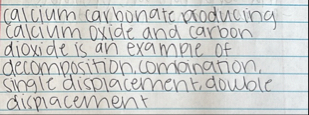 calcium carbonate producing
calcium oxide and carbon
dioxide is an example of
decomposition, combination,
single displacement, double
displacement